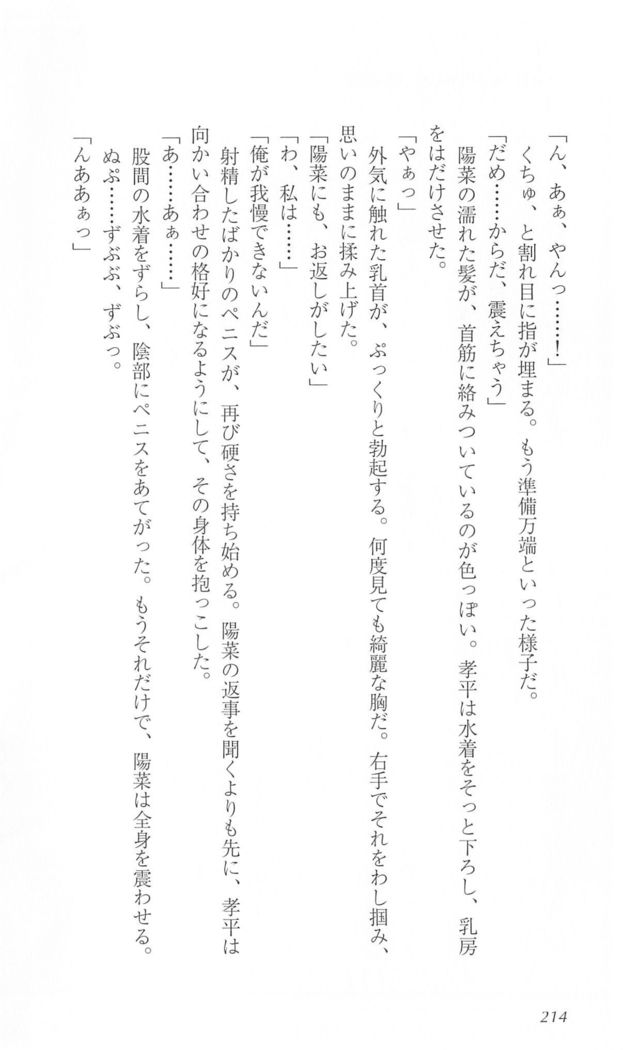 「ん、あぁ、やんっ……！」
くちゅ、と割れ目に指が埋まる。もう準備万端といった様子だ。
「だめ……からだ、震えちゃう」
陽菜の濡れた髪が、首筋に絡みついているのが色っぽい。孝平は水着をそっと下ろし、乳房
をはだけさせた。
「やぁっ」
外気に触れた乳首が、ぷっくりと勃起する。何度見ても綺麗な胸だ。右手でそれをわし掴み、
思いのままに揉み上げた。
「陽菜にも、お返しがしたい」
「わ、私は……」
「俺が我慢できないんだ」
射精したばかりのペニスが、再び硬さを持ち始める。陽菜の返事を聞くよりも先に、孝平は
向かい合わせの格好になるようにして、その身体を抱っこした。
「あ……あぁ……」
股間の水着をずらし、陰部にペニスをあてがった。もうそれだけで、陽菜は全身を震わせる。
ぬぷ……ずぶぶ、ずぶっ。
「んああぁっ」
214